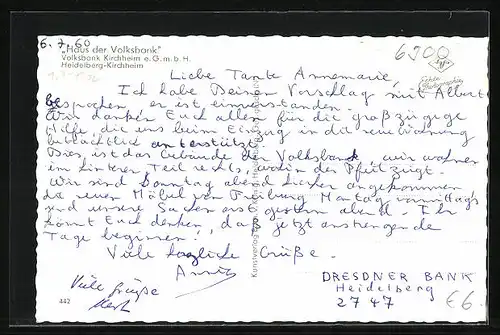 6.7.60
"Haus der Volksbank"
Volksbank Kirchheim e.G.m.b.H.
Heidelberg-Kirchheim
6900
Echte Photographie
Liebe Tante Annemarie,
Ich habe Deinen Vorschlag mit Albert
besprochen, er ist einverstanden.
Wir danken Euch allen für die großzügige
Hilfe, die uns beim Einzug in die neue Wohnung
beträchtlich unterstützt.
Dies ist das Gebäude der Volksbank, wir wohnen
im hinteren Teil rechts, wohin der Pfeil zeigt.
Wir sind Sonntag abend hier angekommen,
die neuen Möbel von Freiburg Montag vormittags
und unsere Sachen erst gestern abend. Ihr
könnt Euch denken, daß jetzt anstrengende
Tage beginnen.
Viele herzliche Grüße.
Viele Grüße
DRESDNER BANK
Heidelberg
2747
442
€6.